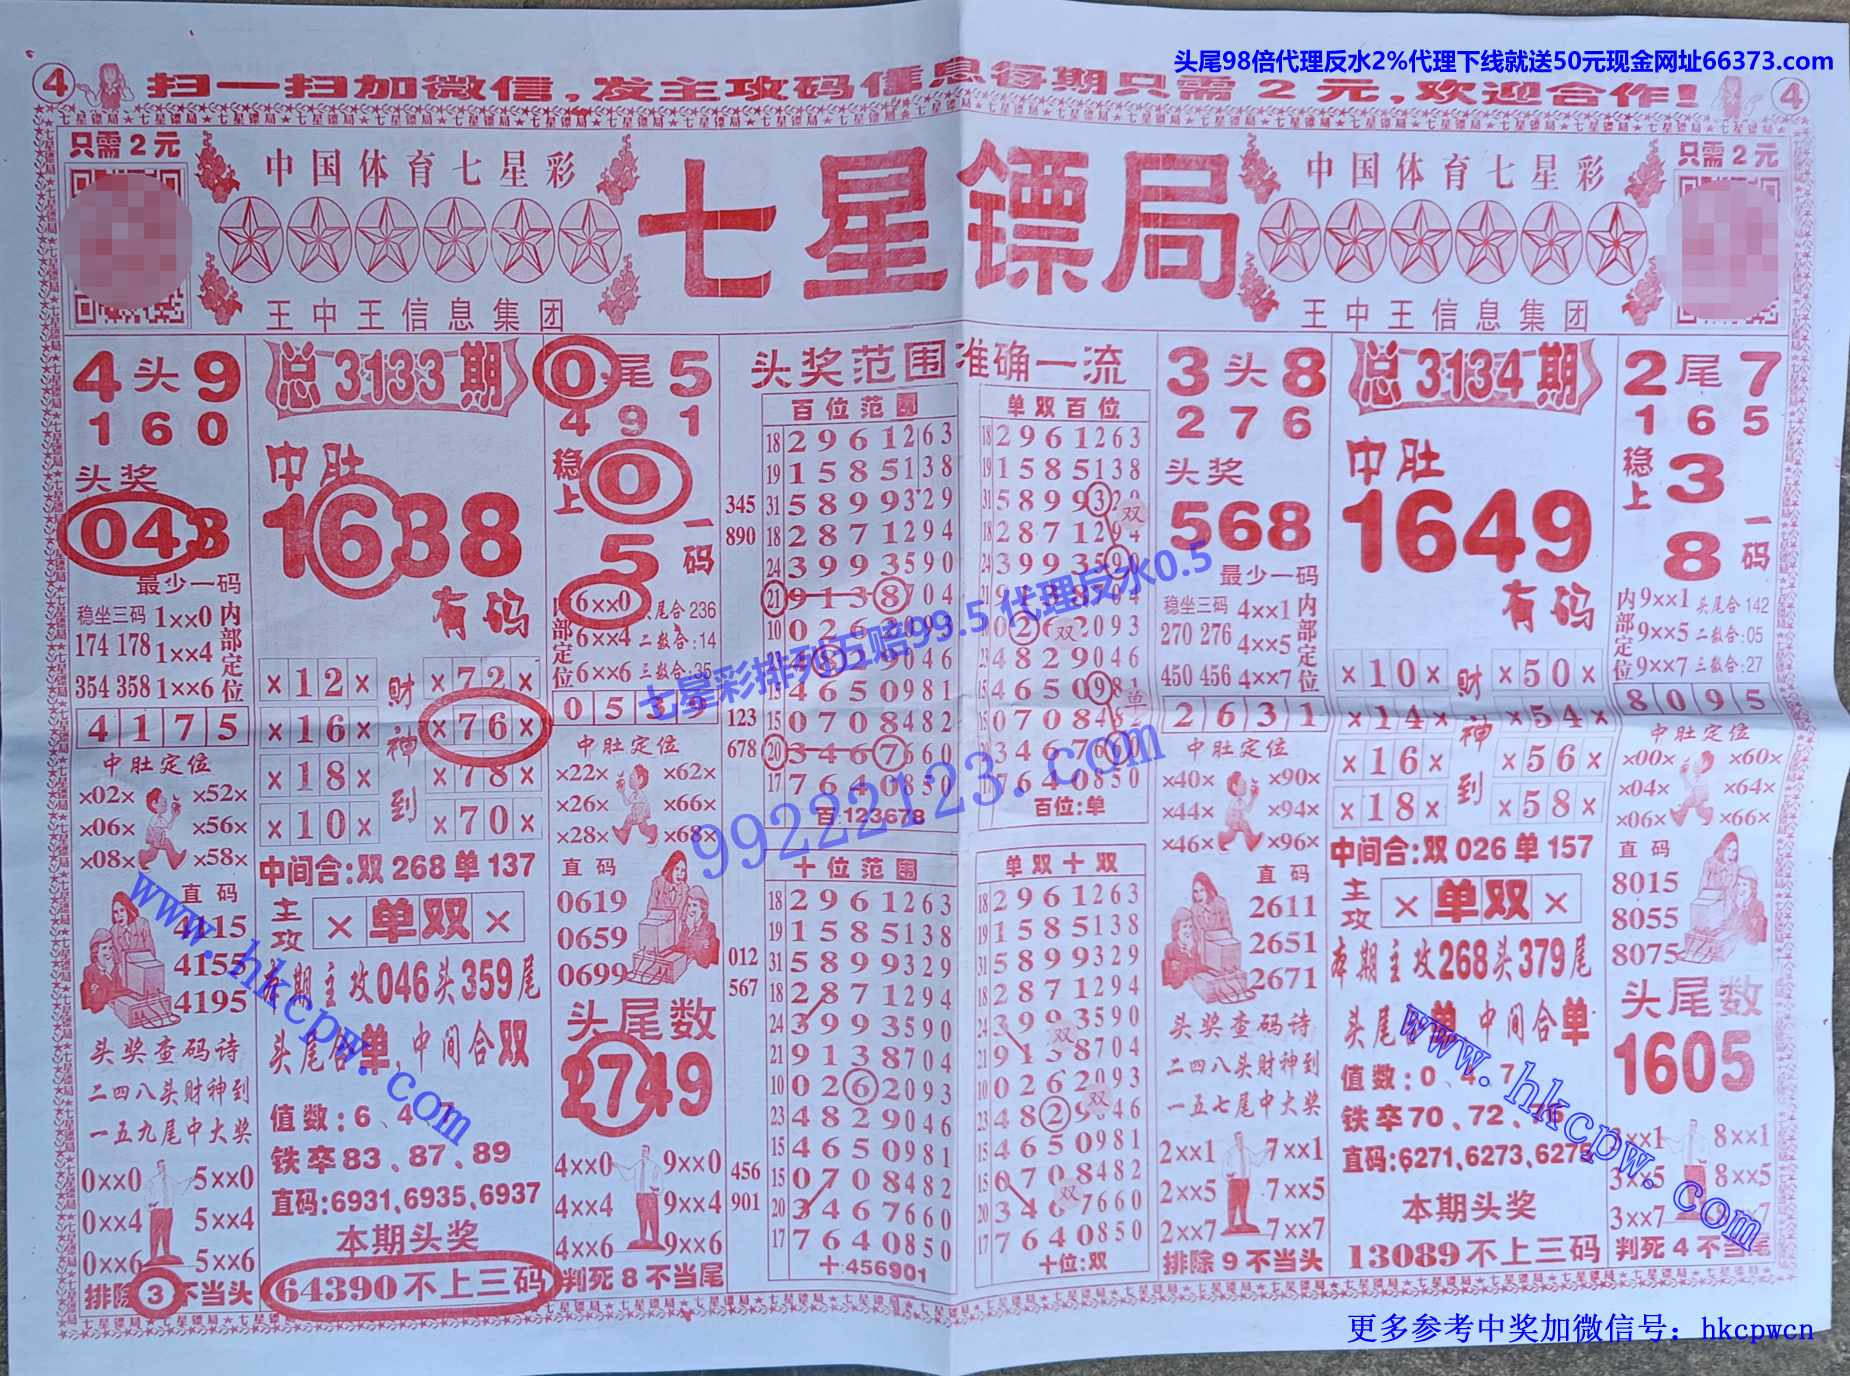 头尾98倍代理反水2%代理下线就送50元现金网址66373.com
④ 扫一扫加微信,发主攻码信息每期只需2元,欢迎合作! ④
只需2元
中国体育七星彩
王中王信息集团
七星镖局
中国体育七星彩
王中王信息集团
只需2元
4头9
160
头奖
043
最少一码
稳坐三码
174 178
354 358
1××0
1××4
1××6
内部定位
4175
中肚定位
×02× ×52×
×06× ×56×
×08× ×58×
直码
4115
4155
4195
头奖查码诗
二四八头财神到
一五九尾中大奖
0××0 5××0
0××4 5××4
0××6 5××6
排除3不当头
总3133期
中肚
1638
有码
×12× ×72×
×16× ×76×
×18× ×78×
×10× ×70×
财神到
中间合:双268单137
主攻 ×单双×
本期主攻046头359尾
头尾合单,中间合双
值数:6、4、7
铁卒83、87、89
直码:6931、6935、6937
本期头奖
64390不上三码
0尾5
491
稳上
0
5
一码
内部定位
6××0 头尾合236
6××4 二数合:14
6××6 三数合:35
0539
中肚定位
×22× ×62×
×26× ×66×
×28× ×68×
直码
0619
0659
0699
头尾数
2749
4××0 9××0
4××4 9××4
4××6 9××6
判死8不当尾
头奖范围准确一流
百位范围
18 2961263
19 1585138
345 31 5899329
890 18 2871294
24 3993590
21 9138704
10 0262093
4829046
15 4650981
123 15 0708482
678 20 3467660
17 7640850
百:123678
单双百位
18 2961263
19 1585138
31 589932
18 2871294
24 3993590
21
10 0262093
23 4829046
15 465098
15 0708482
20 346766
17 7640850
百位:单
十位范围
18 2961263
19 1585138
012 31 5899329
567 18 2871294
24 3993590
21 9138704
10 0262093
23 4829046
15 4650981
456 15 0708482
901 20 3467660
17 7640850
十:456901
单双十双
18 2961263
19 1585138
31 5899329
18 2871294
24 3993590
21 9138704
10 0262093
23 4829046
15 4650981
15 0708482
20 3467660
17 7640850
十位:双
3头8
276
头奖
568
最少一码
稳坐三码
270 276
450 456
4××1
4××5
4××7
内部定位
2631
中肚定位
×40× ×90×
×44× ×94×
×46× ×96×
直码
2611
2651
2671
头奖查码诗
二四八头财神到
一五七尾中大奖
2××1 7××1
2××5 7××5
2××7 7××7
排除9不当头
总3134期
中肚
1649
有码
×10× ×50×
×14× ×54×
×16× ×56×
×18× ×58×
财神到
中间合:双026单157
主攻 ×单双×
本期主攻268头379尾
头尾合单,中间合单
值数:0、4、7
铁卒70、72、76
直码:6271、6273、6275
本期头奖
13089不上三码
2尾7
165
稳上
3
8
一码
内部定位
9××1 头尾合142
9××5 二数合:05
9××7 三数合:27
8095
中肚定位
×00× ×60×
×04× ×64×
×06× ×66×
直码
8015
8055
8075
头尾数
1605
3××1 8××1
3××5 8××5
3××7
判死4不当尾
七星彩排列五赔99.5 代理反水0.5
99222123.com
www.hkcpw.com
www.hkcpw.com
更多参考中奖加微信号: hkcpwcn